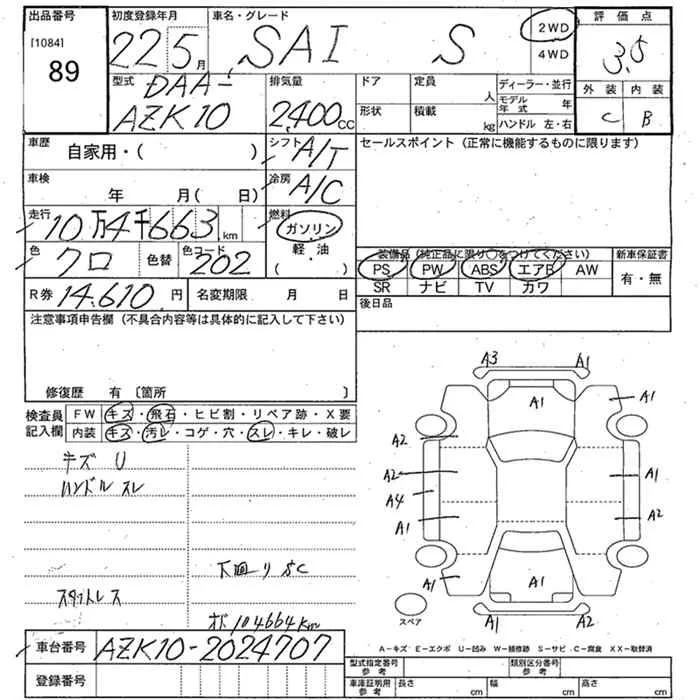 出品番号 初度登録年月 車名・グレード 評価点
[1084]
89
22 5月 SAI S 2WD 4WD 3.5
型式 DAA- AZK10 排気量 2,400cc ドア 定員 人 ディーラー・並行 外装 内装
形状 積載 kg モデル年式 年 C B
ハンドル 左・右
車歴 自家用・( ) シフト A/T セールスポイント (正常に機能するものに限ります)
車検 年 月( 日) 冷房 A/C
走行 10万4千663km 燃料 ガソリン 軽・油 ( )
色 クロ 色替 色コード 202
装備品 (純正品に限り〇をつけてください) 新車保証書
PS PW ABS エアB AW 有・無
SR ナビ TV カワ
R券 14,610円 名変期限 月 日 後日品
注意事項申告欄 (不具合内容等は具体的に記入して下さい)
修復歴 有 〔箇所 〕
検査員記入欄 FW キズ・飛石・ヒビ割・リペア跡・X要
内装 キズ・汚レ・コゲ・穴・スレ・キレ・破レ
キズ U
ハンドル スレ
下廻り SC
スタットレス
オド 104664km
A3 A1
A1 A1
A2
A2 A1
A4
A1 A2
A1 A1 A1
A1 A2
スペア
A－キズ E－エクボ U－凹み W－補修跡 S－サビ C－腐食 XX－取替済
車台番号 AZK10-2024707
登録番号
型式指定番号 参考 類別区分番号 参考
車庫証明用 参考 長さ cm 幅 cm 高さ cm